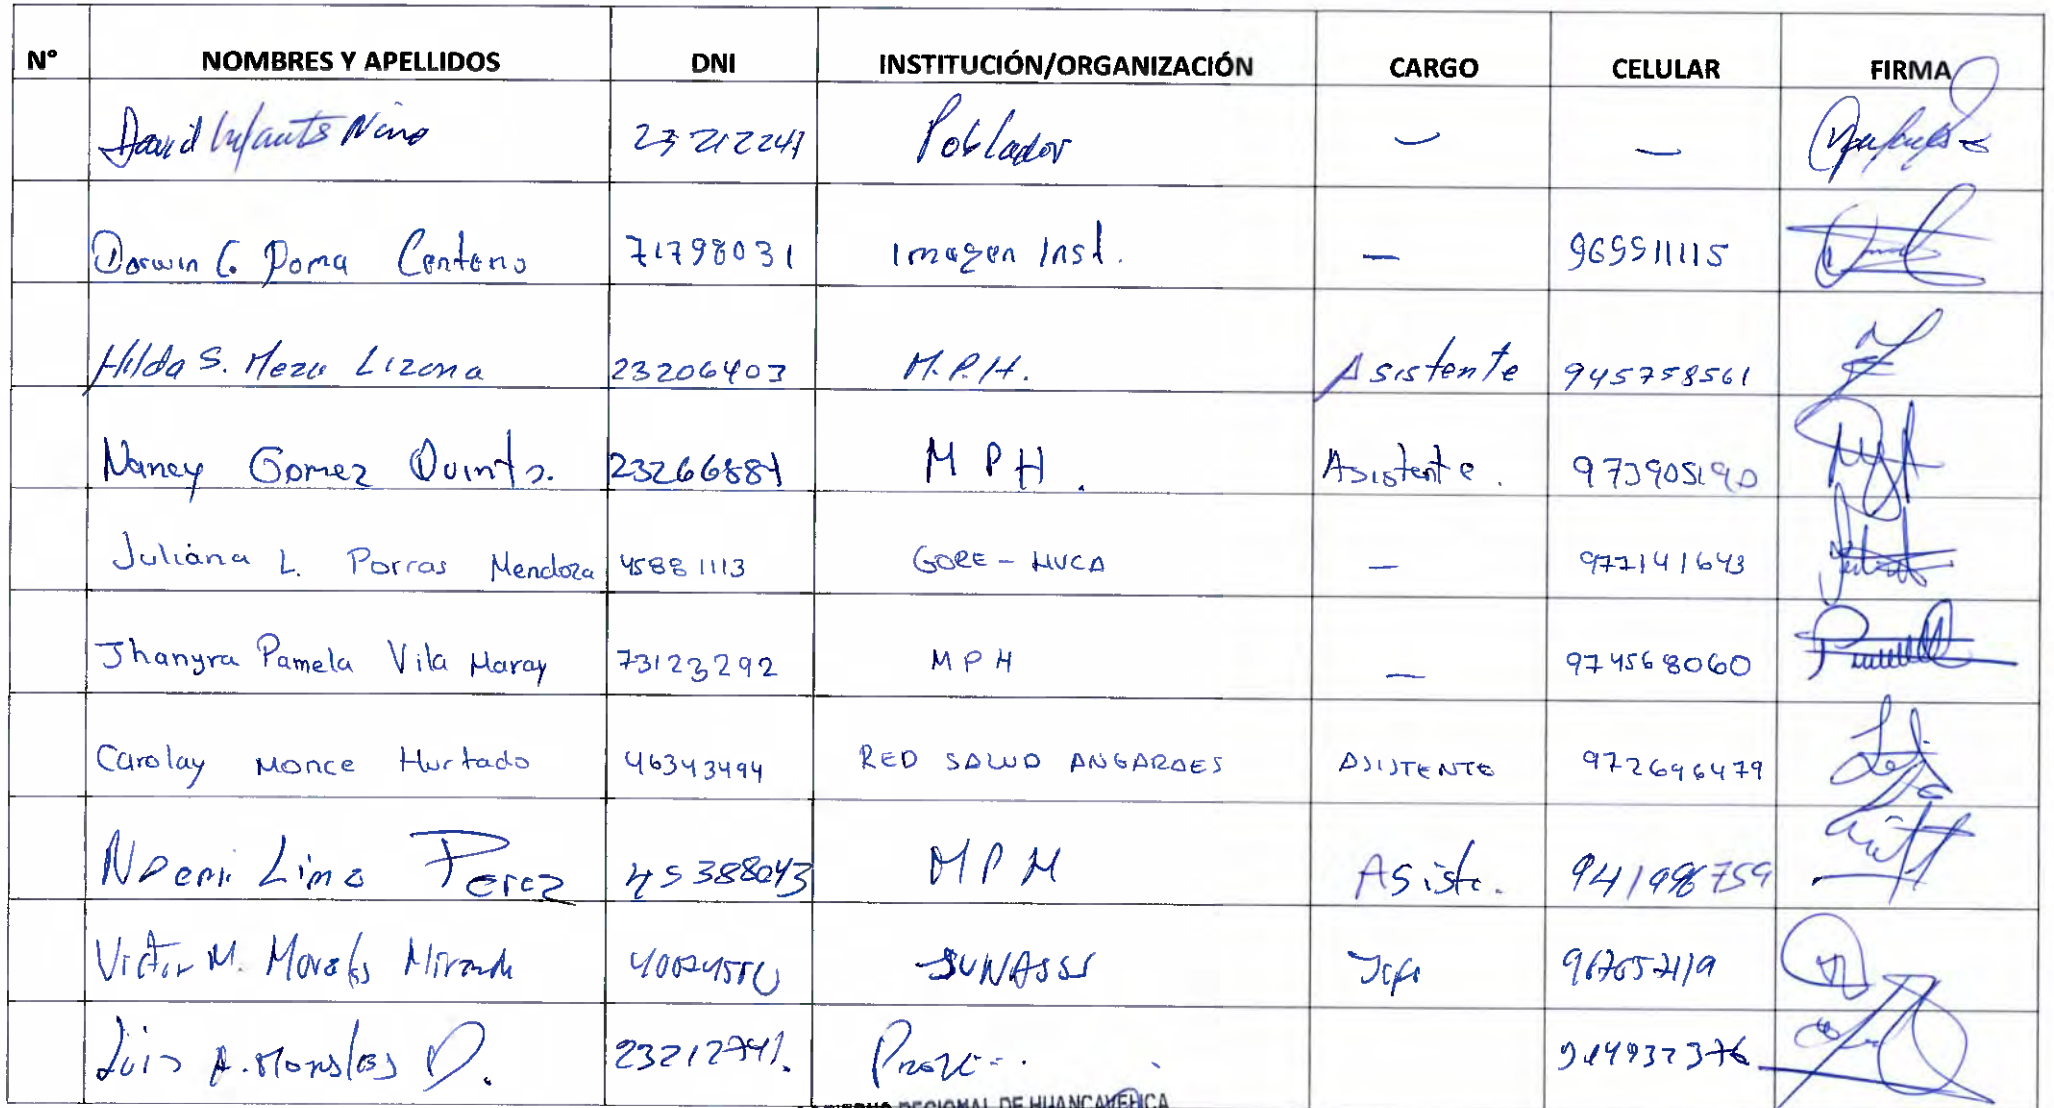 N° NOMBRES Y APELLIDOS DNI INSTITUCIÓN/ORGANIZACIÓN CARGO CELULAR FIRMA
David Infante Nino Poblador — —
Darwin C. Poma Centeno 71798031 Imagen Inst. — 969911115
Hilda S. Meza Lizana 23206403 M.P.H. Asistente 945758561
Nancy Gomez Quinto. 23266884 M P H. Asistente. 973905190
Juliana L. Porras Mendoza 45881113 GORE - HVCA — 977141643
Jhanyra Pamela Vila Haray 73123292 M P H — 974568060
Carolay Monce Hurtado 46343494 RED SALUD ANGARAES ASISTENTE 972646479
Noemi Lima Perez 45388043 M P H Asiste. 941996759
Victor M. Morales Miranda SUNASS Jefe
Luis A. Morales D. 23212741.
REGIONAL DE HUANCAVELICA